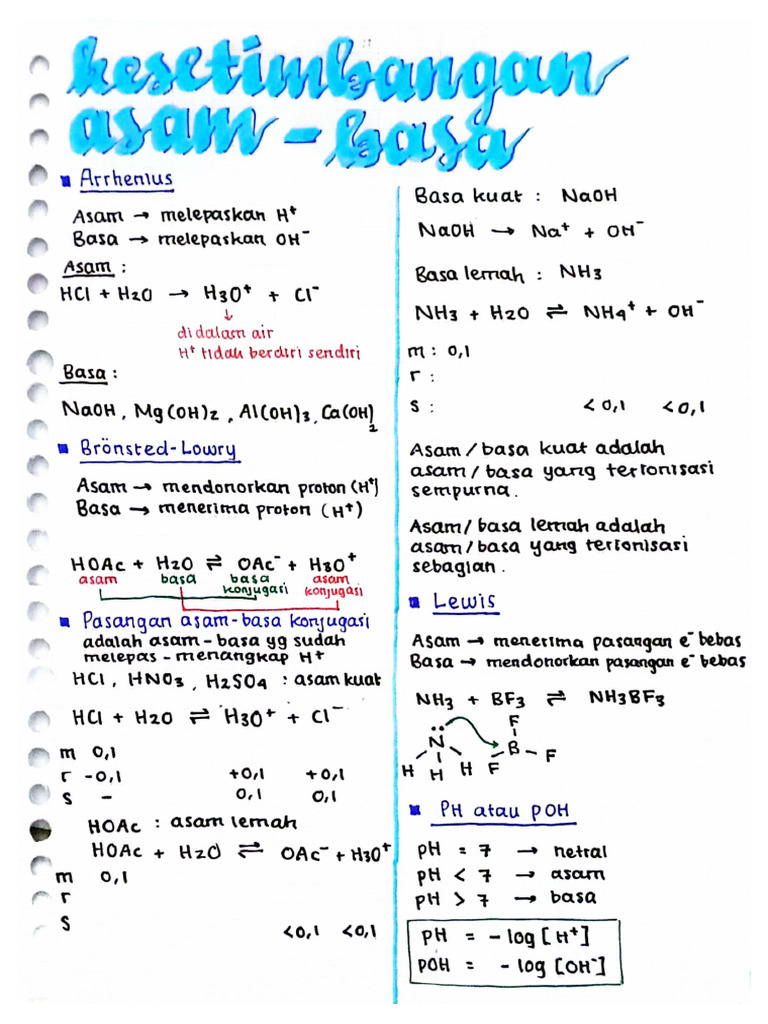 kesetimbangan
asam - basa
▪ Arrhenius
Asam → melepaskan H⁺
Basa → melepaskan OH⁻
Asam :
HCl + H₂O → H₃O⁺ + Cl⁻
↓
di dalam air
H⁺ tidak berdiri sendiri
Basa :
NaOH, Mg(OH)₂, Al(OH)₃, Ca(OH)₂
▪ Brönsted-Lowry
Asam → mendonorkan proton (H⁺)
Basa → menerima proton (H⁺)
HOAc + H₂O ⇌ OAc⁻ + H₃O⁺
asam basa basa konjugasi asam konjugasi
▪ Pasangan asam-basa konjugasi
adalah asam-basa yg sudah
melepas-menangkap H⁺
HCl, HNO₃, H₂SO₄ : asam kuat
HCl + H₂O ⇌ H₃O⁺ + Cl⁻
m 0,1
r -0,1 +0,1 +0,1
s - 0,1 0,1
HOAc : asam lemah
HOAc + H₂O ⇌ OAc⁻ + H₃O⁺
m 0,1
r
s <0,1 <0,1
Basa kuat : NaOH
NaOH → Na⁺ + OH⁻
Basa lemah : NH₃
NH₃ + H₂O ⇌ NH₄⁺ + OH⁻
m : 0,1
r :
s : <0,1 <0,1
Asam/basa kuat adalah
asam/basa yang terionisasi
sempurna.
Asam/basa lemah adalah
asam/basa yang terionisasi
sebagian.
▪ Lewis
Asam → menerima pasangan e⁻ bebas
Basa → mendonorkan pasangan e⁻ bebas
NH₃ + BF₃ ⇌ NH₃BF₃
F
N B F
H H H F
▪ PH atau POH
pH = 7 → netral
pH < 7 → asam
pH > 7 → basa
PH = - log [H⁺]
POH = - log [OH⁻]